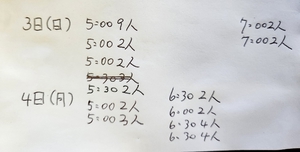 3日(日) 5:00 9人 7:00 2人
5:00 2人 7:00 2人
5:00 2人
5:30 3人
5:30 2人 6:30 2人
4日(月) 5:00 2人 6:00 2人
5:00 3人 6:30 4人
6:30 4人